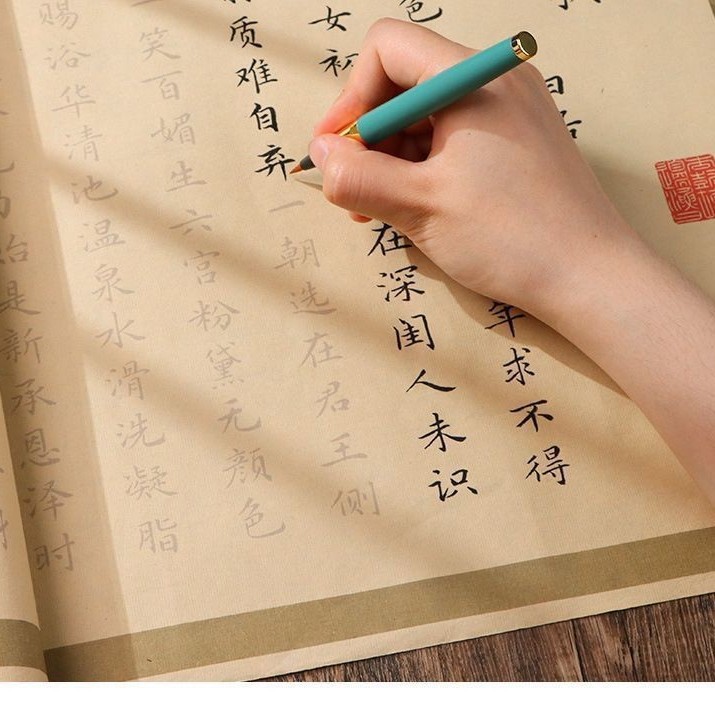 色年求不得
女初在深闺人未识
质难自弃一朝选在君王侧
一笑百媚生六宫粉黛无颜色
赐浴华清池温泉水滑洗凝脂
始是新承恩泽时